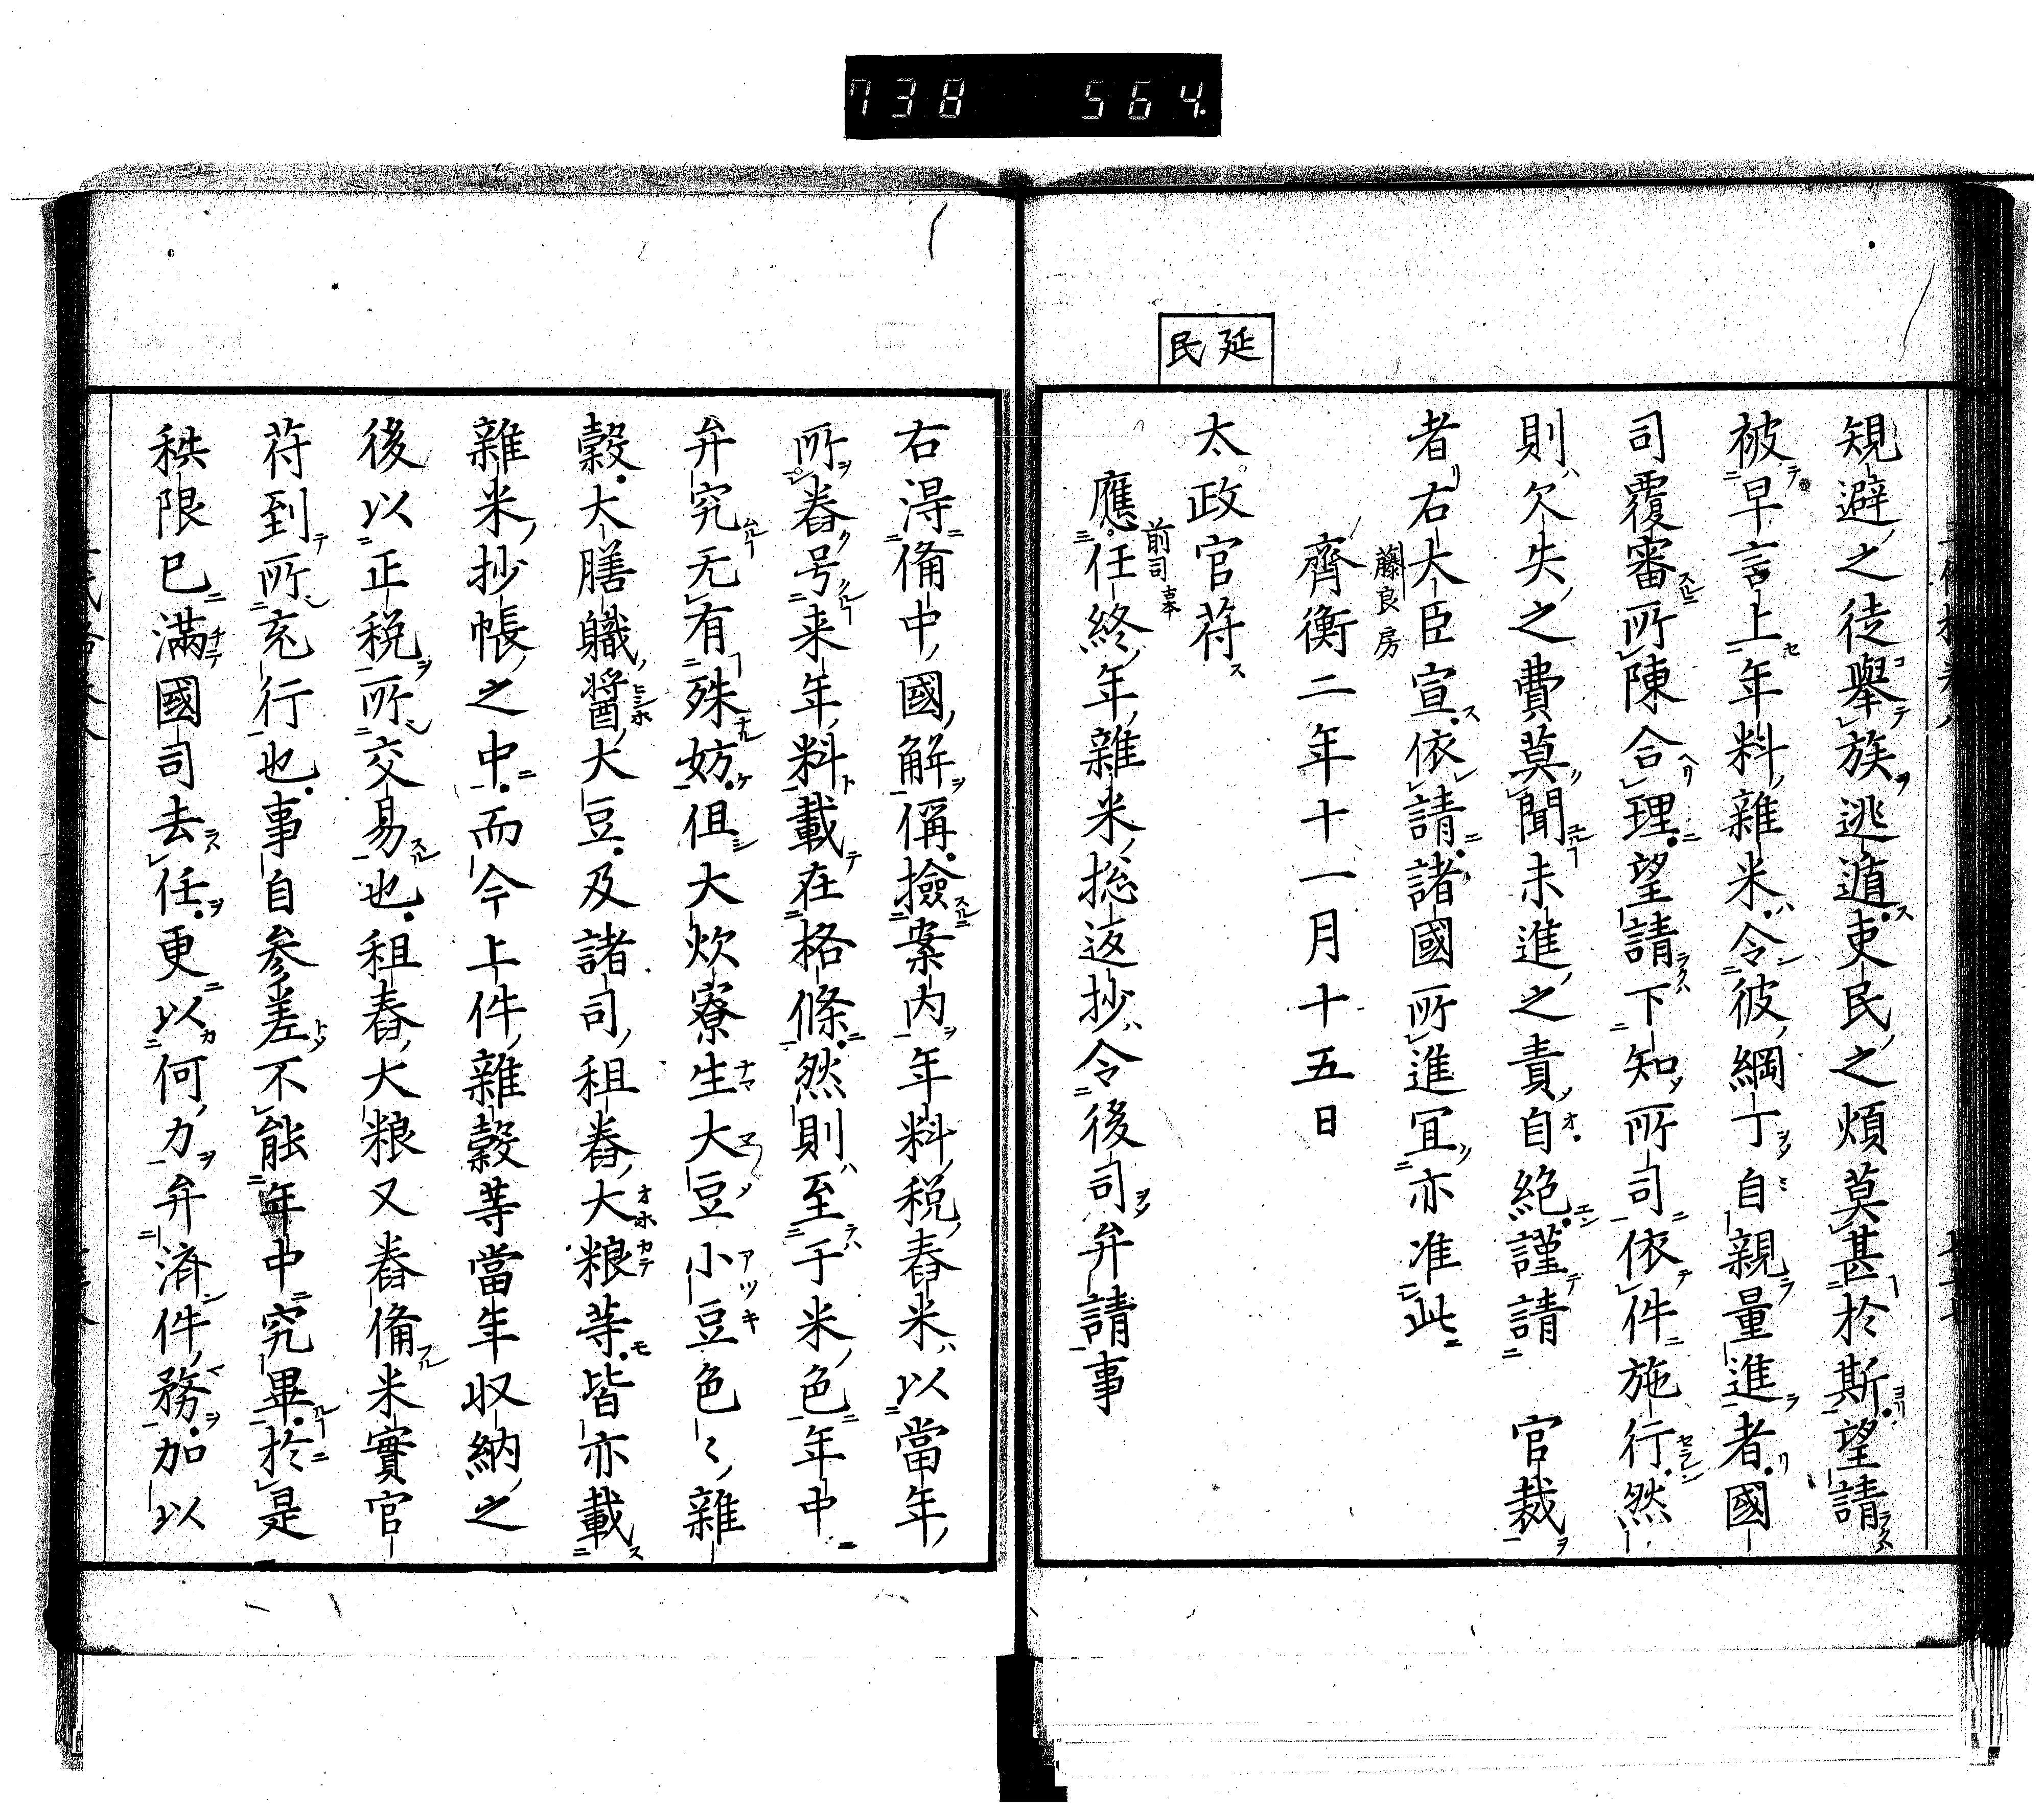 738 564
規避之徒擧族逃遁吏民之煩莫甚於斯望請
被早言上年料雜米令彼綱丁自親量進者國
司覆審所陳合理望請下知所司依件施行然
則欠失之費莫聞未進之責自絶謹請 官裁
者右大臣宣依請諸國所進冝亦准此
藤良房
齊衡二年十一月十五日
延民
太政官苻
前司 古本
應任終年雜米惣返抄令後司弁請事
右淂俻中國解偁撿案内年料税舂米以當年
所舂号来年料載在格條然則至于米色年中
弁究无有殊妨但大炊寮生大豆小豆色〻雜
糓大膳職醤大豆及諸司租舂大粮等皆亦載
雜米抄帳之中而今上件雜糓等當年収納之
後以正税所交易也租舂大粮又舂俻米實官
苻到所充行也事自参差不能年中究畢於是
秩限已滿國司去任更以何力弁済件務加以